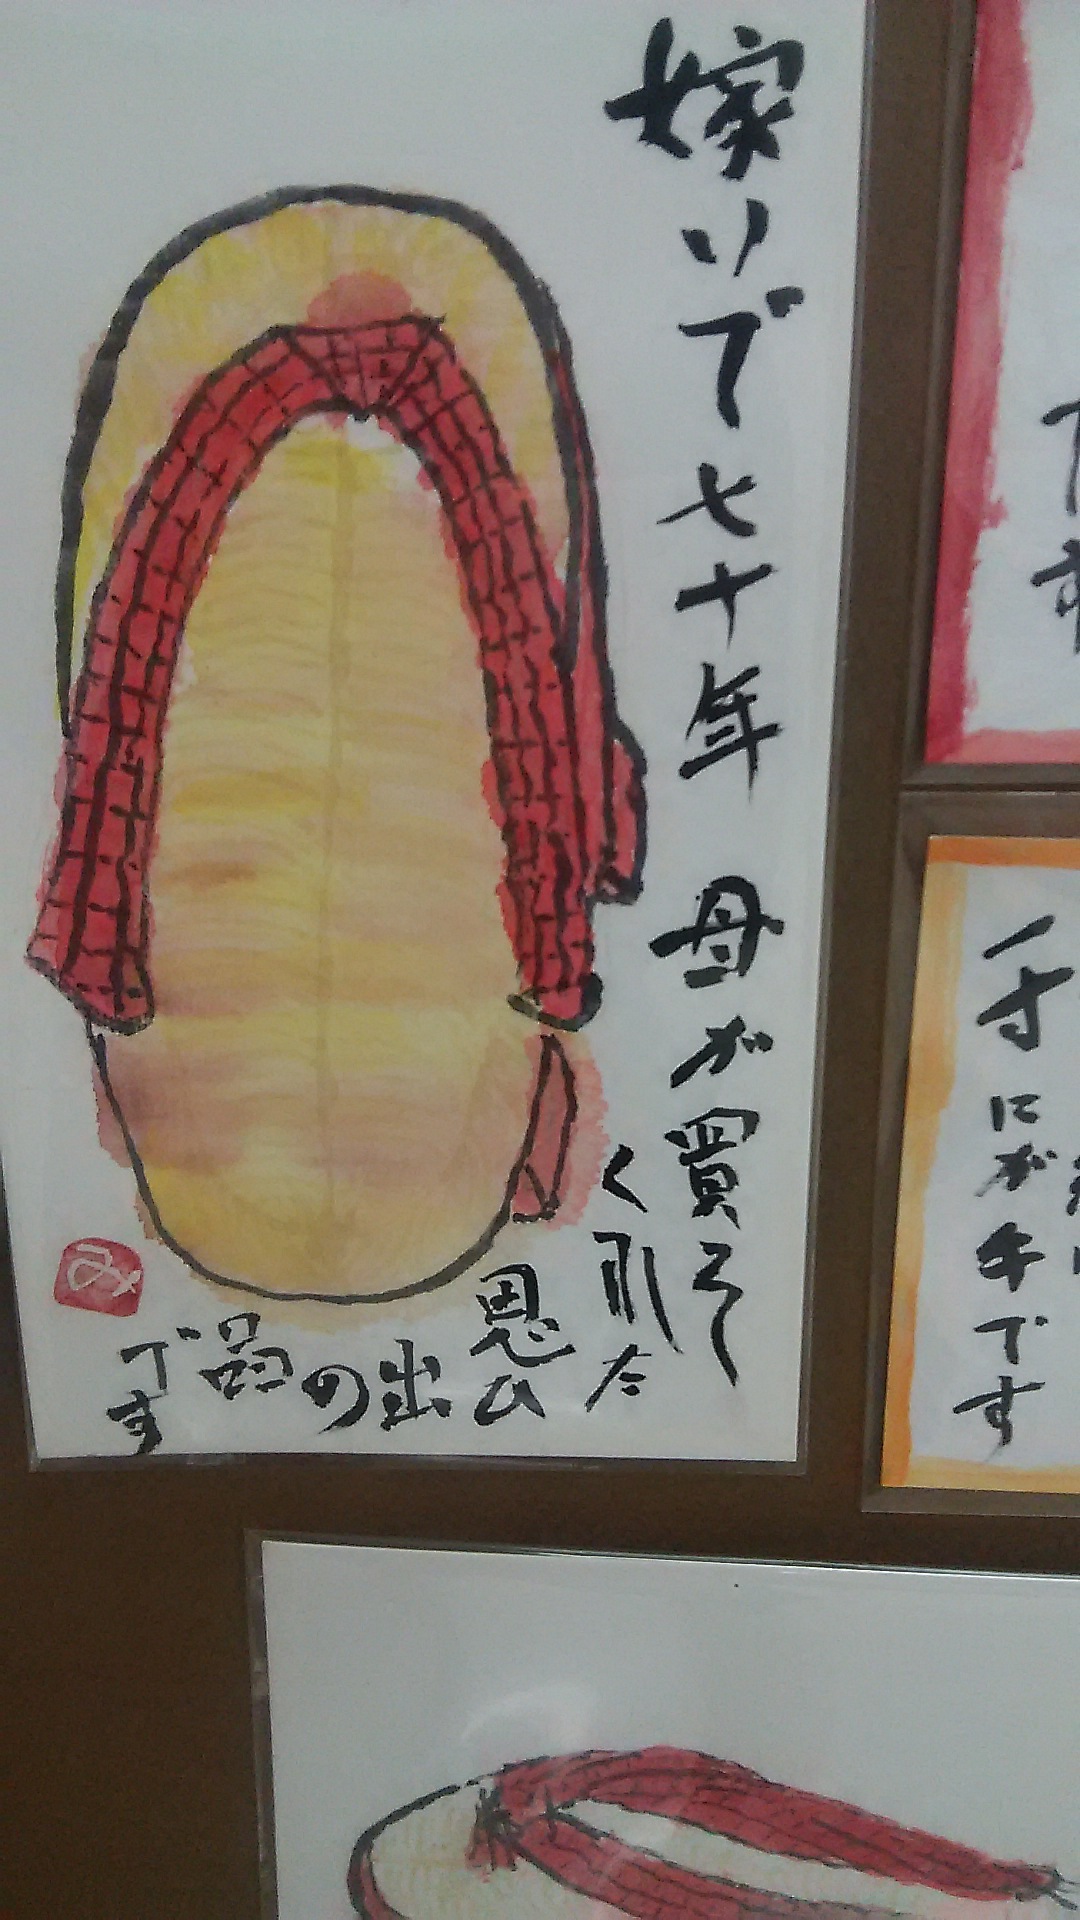 嫁いで七十年 母が買って
くれた
思い
出
の
品
です
み
手にが年です